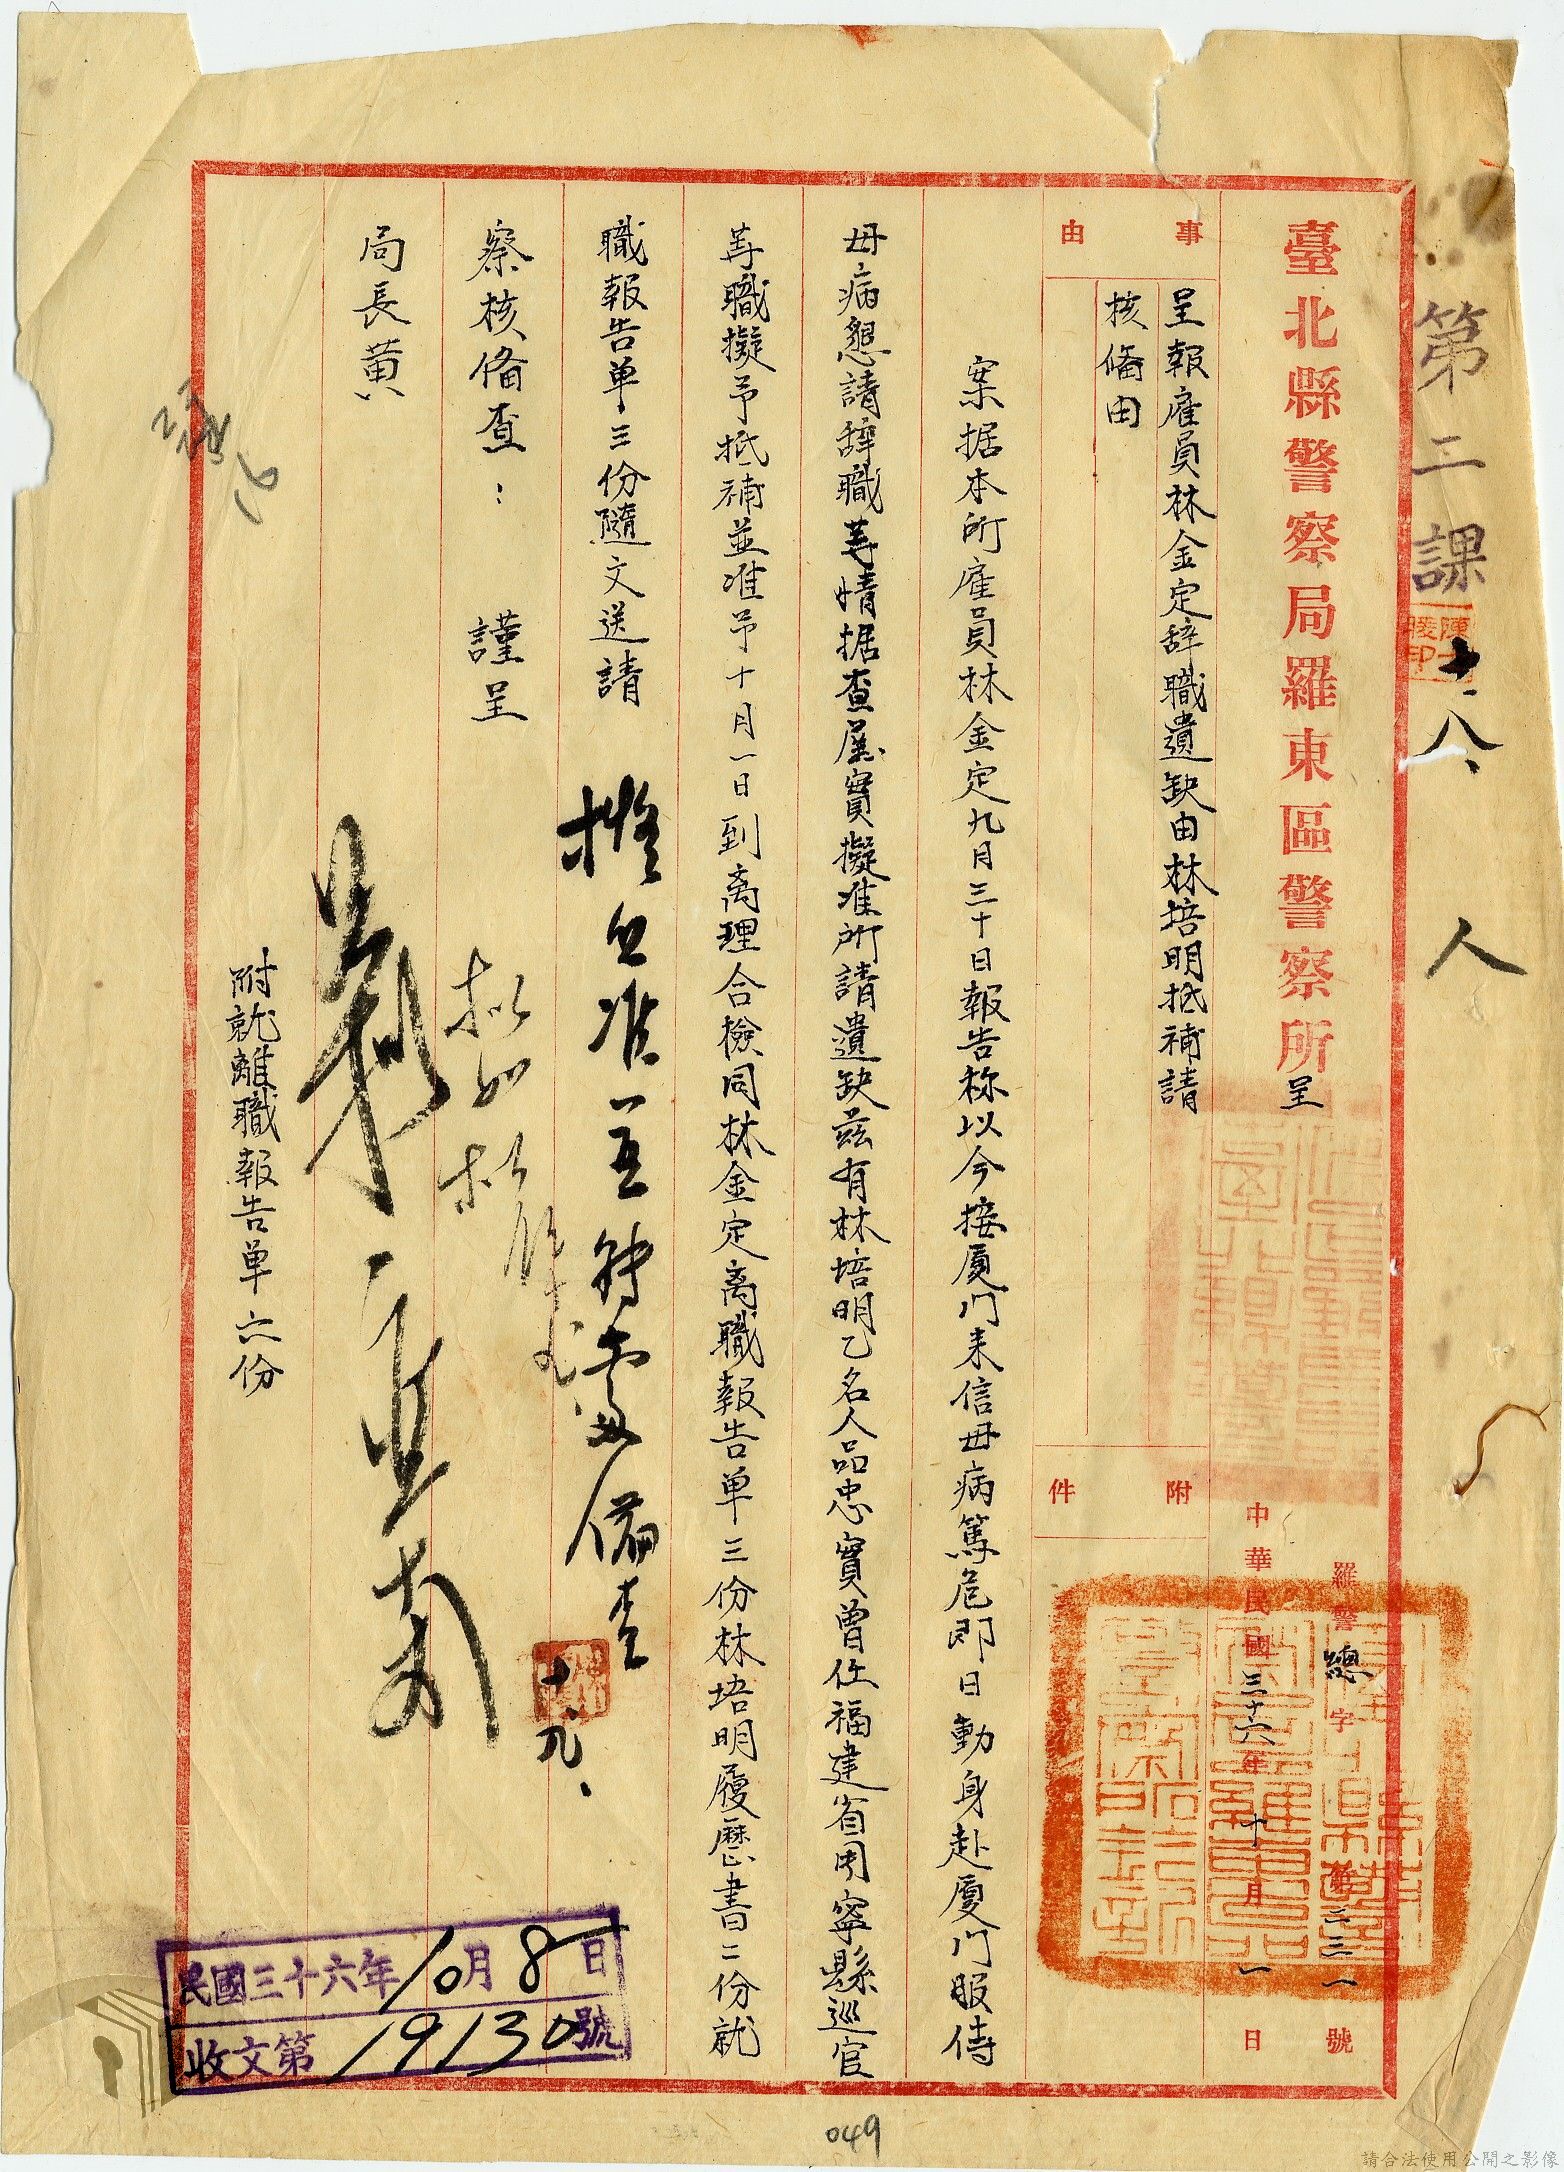 第二課
十、八、
人
臺北縣警察局羅東區警察所呈
羅警總字第二三一號
中華民國三十六年十月一日
事由
呈報雇員林金定辞職遺缺由林培明抵補請
核備由
附件
案据本所雇員林金定九月三十日報告称以今接厦门来信母病篤危即日動身赴厦门服侍
母病懇請辞職等情据查屬實擬准所請遺缺茲有林培明乙名人品忠實曾任福建省周寧縣巡官
等職擬予抵補並准予十月一日到离理合檢同林金定离職報告单三份林培明履歷書二份就
職報告单三份隨文送請
察核备查：
謹呈
局長黄
附就離職報告单六份
備查
民國三十六年10月8日
收文第19130號
049
請合法使用公開之影像